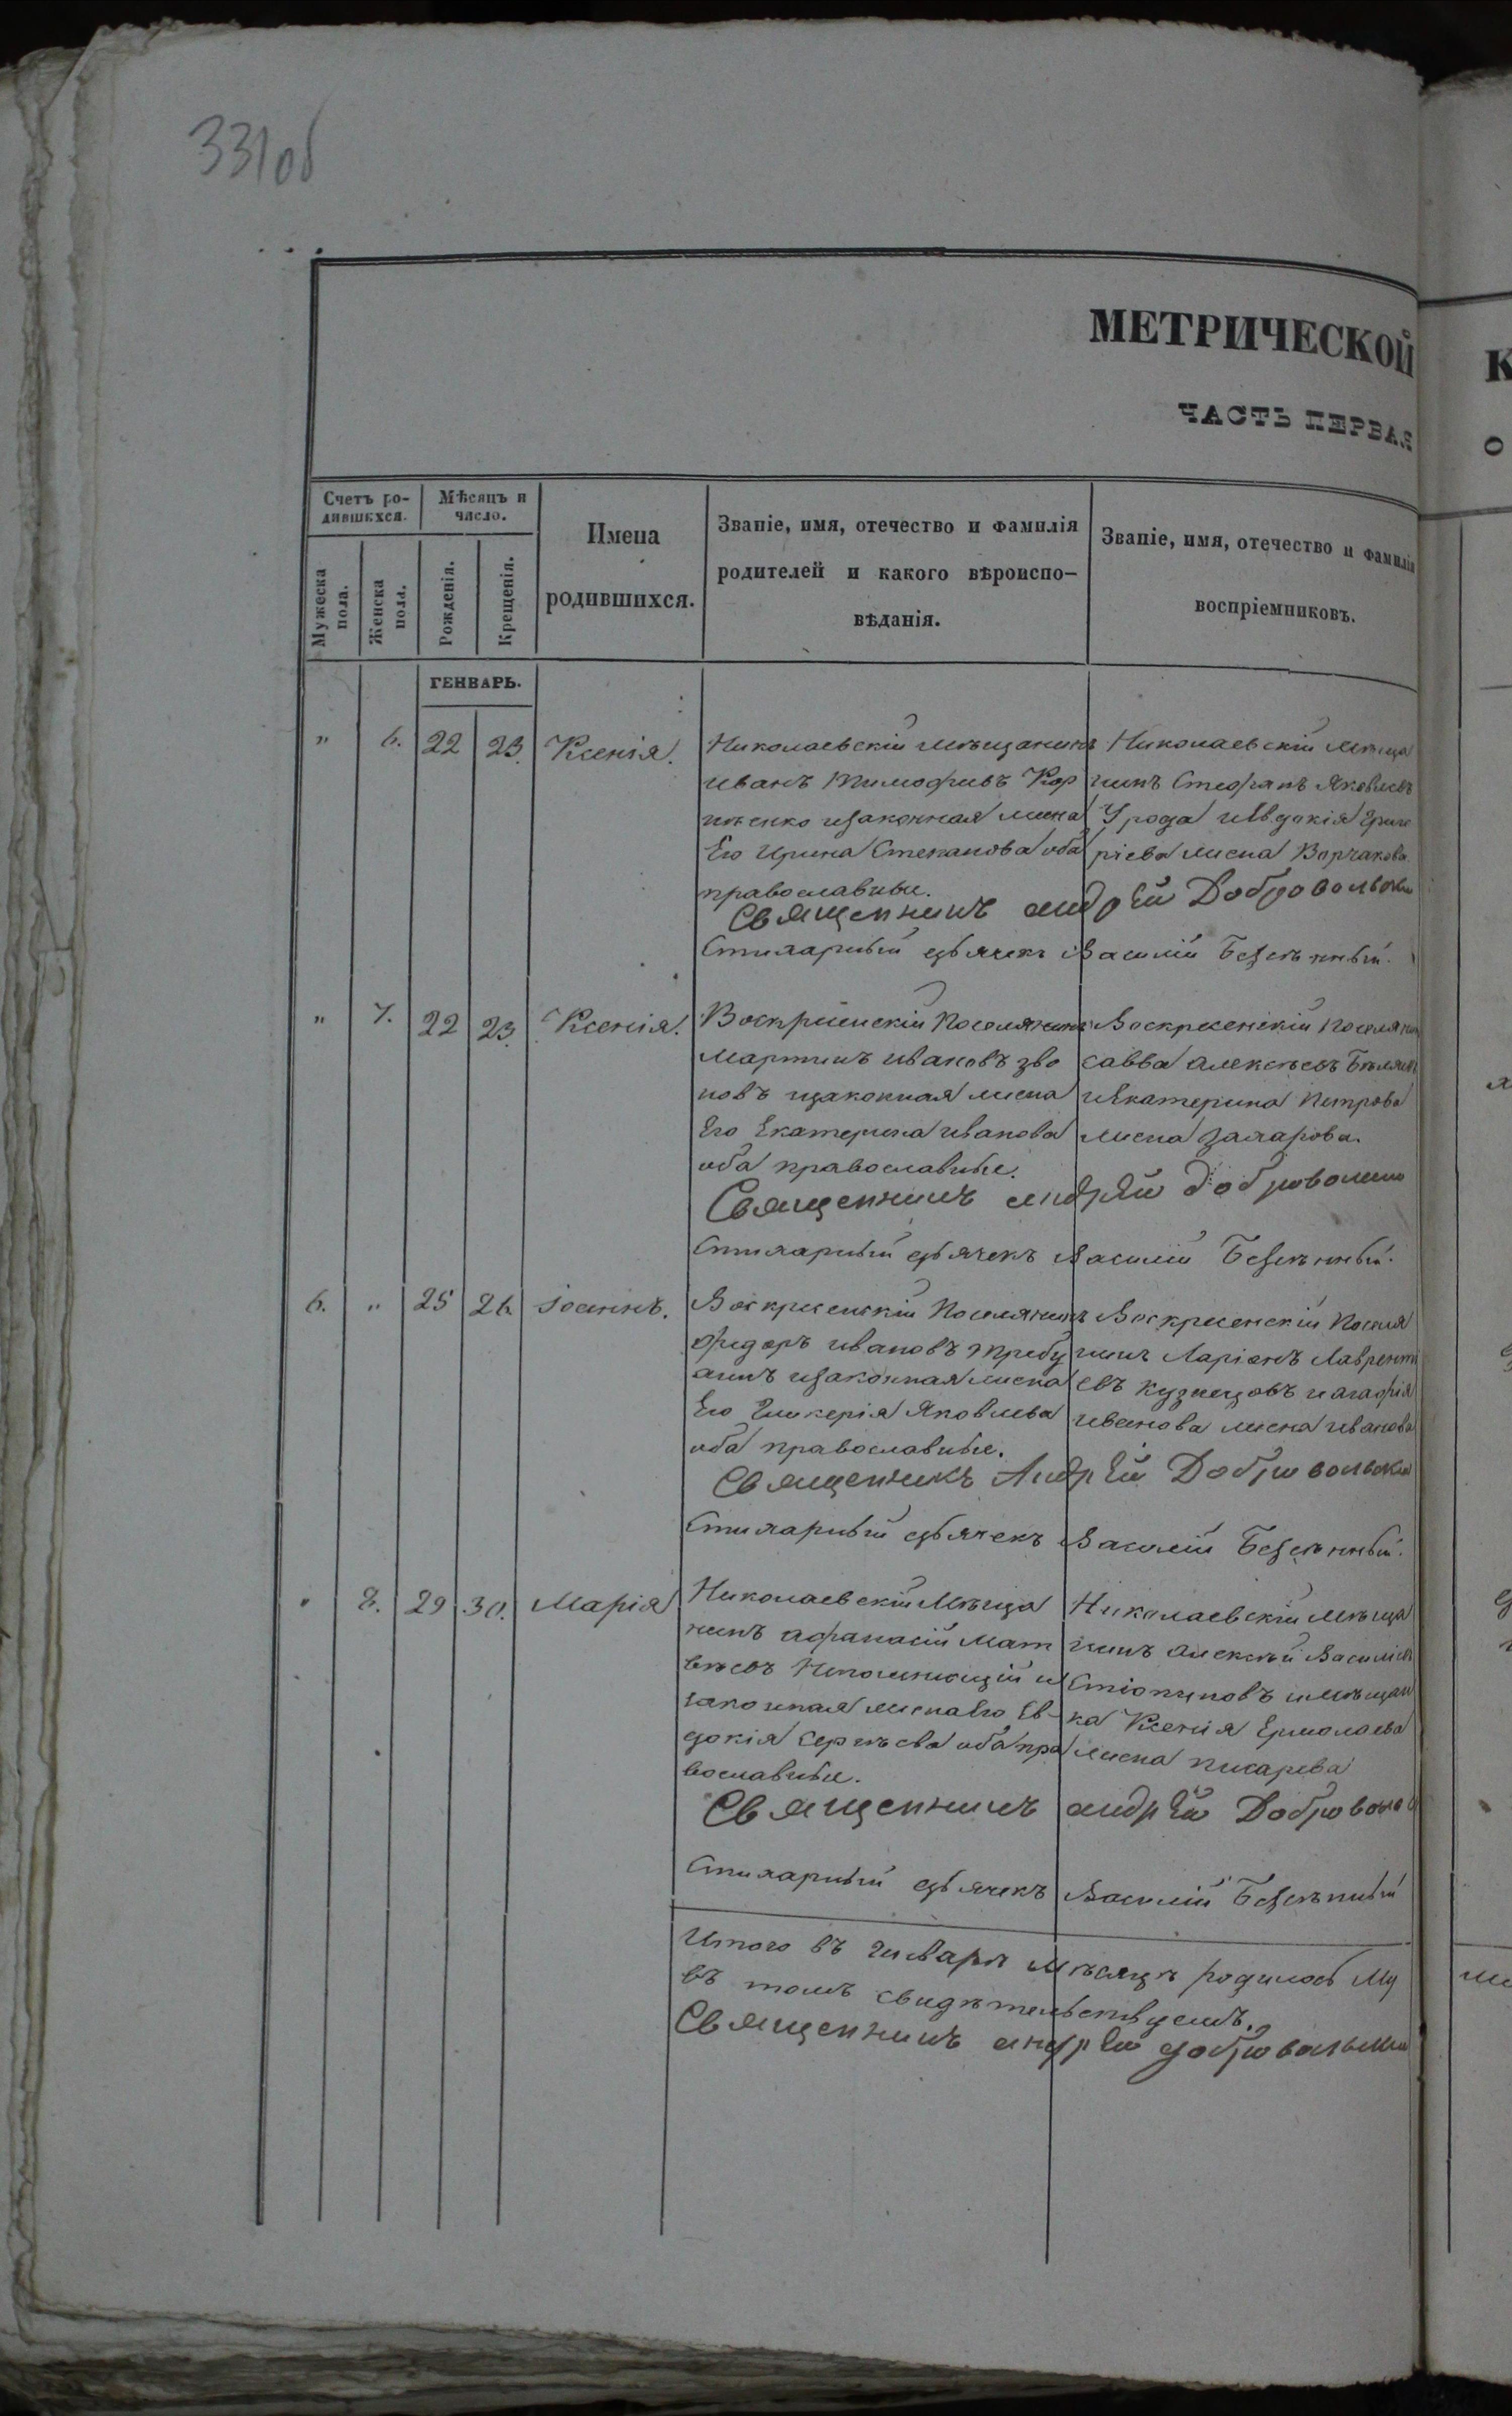 331об
МЕТРИЧЕСКОЙ
ЧАСТЬ ПЕРВАЯ
К
О
Счетъ ро-
дившихся.
Мужеска
пола.
Женска
пола.
Мѣсяцъ и
число.
Рожденія.
Крещенія.
Имена
родившихся.
Званіе, имя, отечество и фамилія
родителей и какого вѣроиспо-
вѣданія.
Званіе, имя, отечество и фамилія
воспріемниковъ.
ГЕНВАРЬ.
" 6. 22 23. Ксенія.
Николаевскій мѣщанинъ
Иванъ Тимофѣевъ Кор
иѣенко изаконная жена
Его Ирина Степанова оба
православные.
Николаевскій мѣща
нинъ Стефанъ Яковлевъ
Урода иЕвдокія Григо
ріева жена Ворчакова.
Священникъ андрей Добровольски
Стихарный дьячекъ Василій Безцѣнный.
" 7. 22 23. Ксенія.
Воскресенскій Поселянинъ
Мартинъ ивановъ зво
новъ изаконная жена
Его Екатерина иванова
оба православные.
Воскресенскій поселянин
савва алексѣевъ
иЕкатерина петрова
жена захарова.
Священникъ андрей добровольски
Стихарный дьячекъ Василій Безцѣнный.
6. " 25 26. Іоаннъ.
Воскресенскій Поселянинъ
федоръ ивановъ требу
аинъ изаконная жена
Его Гликерія Яковлева
оба православные.
Воскресенскій Поселя
нинъ Ларіонъ Лаврентi
евъ кузнецовъ иагафія
иванова жена иванова
Священникъ Андрей Добровольски
Стихарный дьячекъ Василій Безцѣнный.
" 8. 29 30. Марія
Николаевскій Мѣща
нинъ афанасій Мат
вѣевъ Непомнющій и
законная женаЕго Ев-
докія Сергѣева оба пра
вославные.
Николаевскій мѣща
нинъ алексѣй Василіевъ
Стіопиновъ имѣщан
ка Ксенія Ермолаева
жена писарева
Священникъ андрей Доброволь
Стихарный дьячекъ Василій Безцѣнный
Итого въ генварѣ мѣсяцѣ родилось Му
въ томъ свидѣтельствуемъ.
Священникъ андрей добровольски